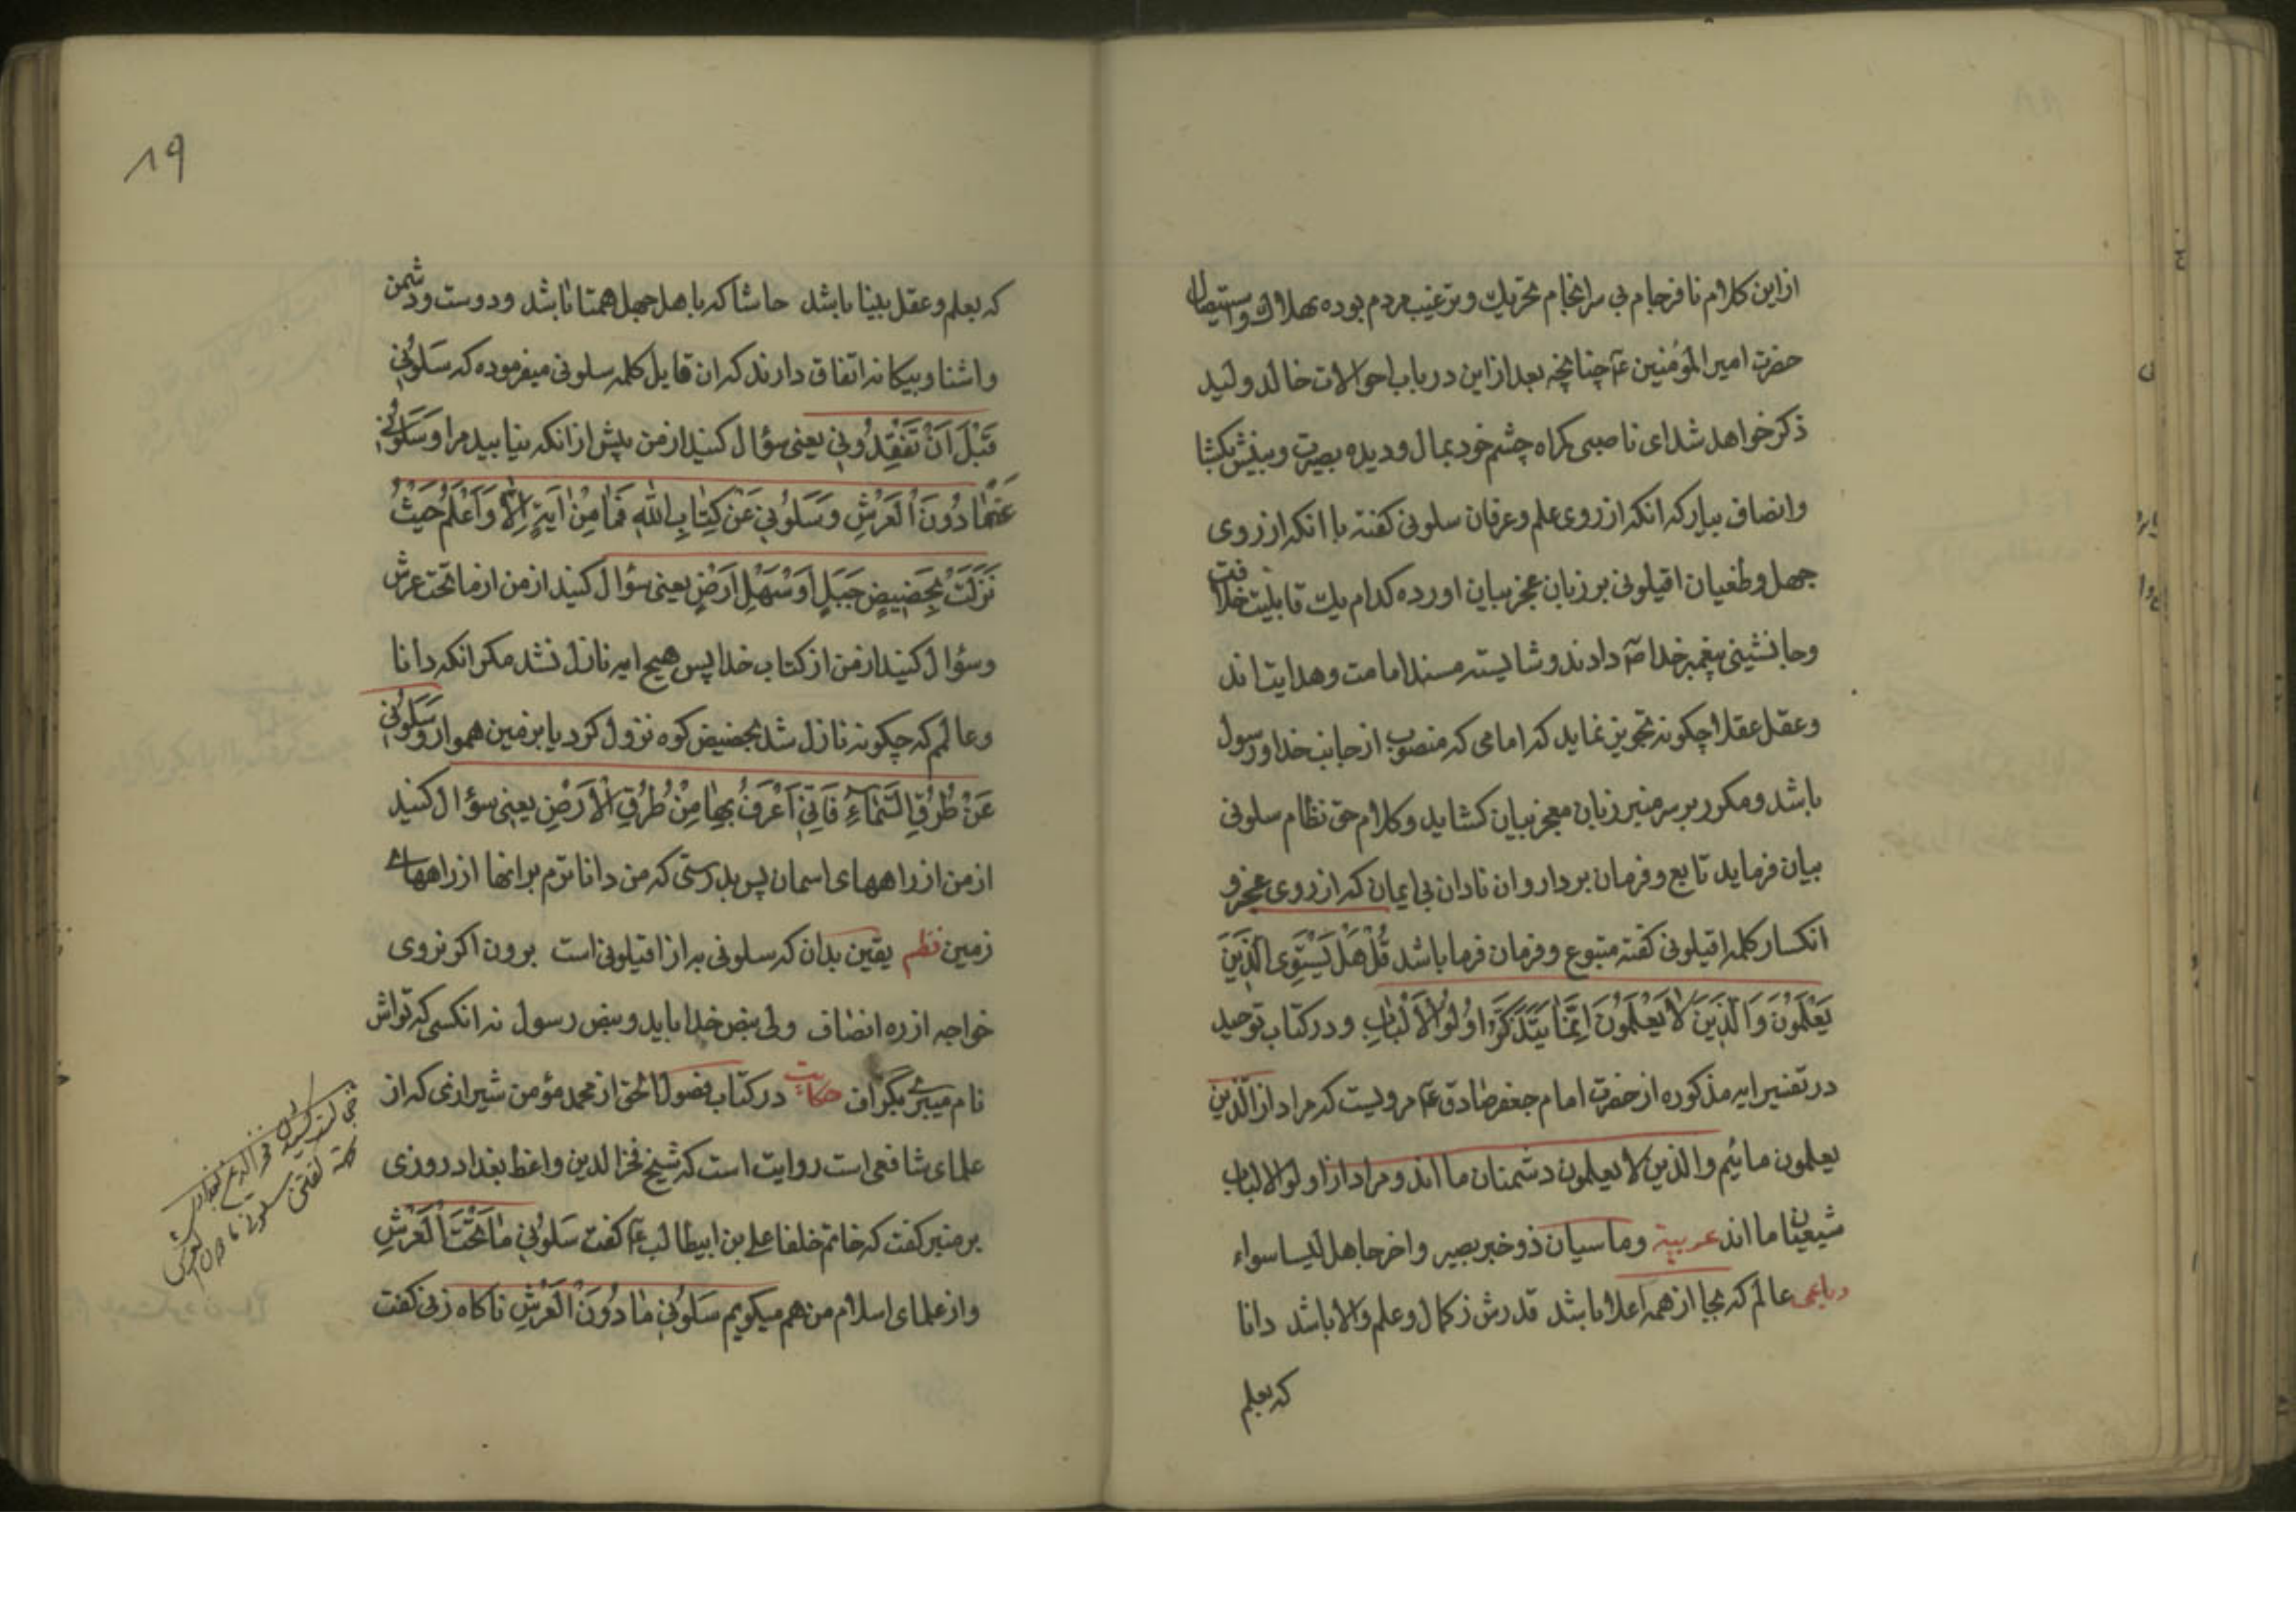 از این کلام نافرجام بی سرانجام تحریک و ترغیب مردم بوده بهلاک و استیصال
حضرت امیر المؤمنین ع چنانچه بعد از این در باب احوالات خالد ولید
ذکر خواهد شد ای ناصبی کمراه چشم خود بمال و دیده بصیرت و بینش بکشا
وانصاف بیار که انکه از روی علم و عرفان سلونی کفته با انکه از روی
جهل و طغیان اقیلونی بر زبان عجز بیان اورده کدام یک قابلیت خلافت
وجانشینی پیغمبر خدا ص دادند و شایسته مسند امامت و هدایت اند
وعقل عقلا چکونه تجویز نماید که امامی که منصوب از جانب خدا و رسول
باشد و مکرر بر سر منبر زبان معجز بیان کشاید و کلام حق نظام سلونی
بیان فرماید تابع و فرمان بردار و ان نادان بی ایمان که از روی عجز و
انکسار کلمه اقیلونی کفته متبوع و فرمان فرما باشد قُلْ هَلْ یَسْتَوِی الَّذِینَ
یَعْلَمُونَ وَالَّذِینَ لَا یَعْلَمُونَ اِنَّمَا یَتَذَکَّرُ اُولُوا الْاَلْبَابِ و در کتاب توحید
در تفسیر ایه مذکوره از حضرت امام جعفر صادق ع مرویست که مراد از الَّذین
یعلمون مائیم والذین لا یعلمون دشمنان ما اند و مراد از اولوا الالباب
شیعیان ما اند عربیة وما سیان ذو خبر بصیر واخر جاهل لیسا سواء
رباعی عالم که بجا از همه اعلا باشد قدرش ز کمال و علم والا باشد دانا
که بعلم
۸۹
که بعلم و عقل بینا باشد حاشا که با هل جهل همتا باشد و دوست و دشمن
واشنا و بیکانه اتفاق دارند که ان قایل کلمه سلونی میفرموده که سَلُونِی
قَبْلَ اَنْ تَفْقِدُونِی یعنی سؤال کنید از من پیش از انکه نیابید مرا وَسَلُونِی
عَمَّا دُونَ الْعَرْشِ وَسَلُونِی عَنْ کِتَابِ اللهِ فَمَا مِنْ ایَةٍ اِلَّا وَاَعْلَمُ حَیْثُ
نَزَلَتْ بِحَضِیضِ جَبَلٍ اَوْ سَهْلِ اَرْضٍ یعنی سؤال کنید از من از ما تحت عرش
وسؤال کنید از من از کتاب خدا پس هیچ ایه نازل نشد مکر انکه دانا
وعالمم که چکونه نازل شد بحضیض کوه نزول کرد یا بر زمین هموار وَسَلُونِی
عَنْ طُرُقِ السَّمَاءِ فَاِنِّی اَعْرَفُ بِهَا مِنْ طُرُقِ الْاَرْضِ یعنی سؤال کنید
از من از راههای اسمان پس بدرستی که من داناترم بر انها از راههای
زمین نظم یقین بدان که سلونی به از اقیلونی است برون اکر نروی
خواجه از ره انصاف ولی بنص خدا باید و بنص رسول نه انکسی که تواش
نام میبری بگزاف حکایت در کتاب فصول الحق از محمد مؤمن شیرازی که از
علمای شافعی است روایت است که شیخ فخر الدین واعظ بغداد روزی
بر منبر کفت که خاتم خلفا علی بن ابیطالب ع کفت سَلُونِی مَا تَحْتَ الْعَرْشِ
واز علمای اسلام من هم میکویم سَلُونِی مَا دُونَ الْعَرْشِ ناکاه زنی کفت